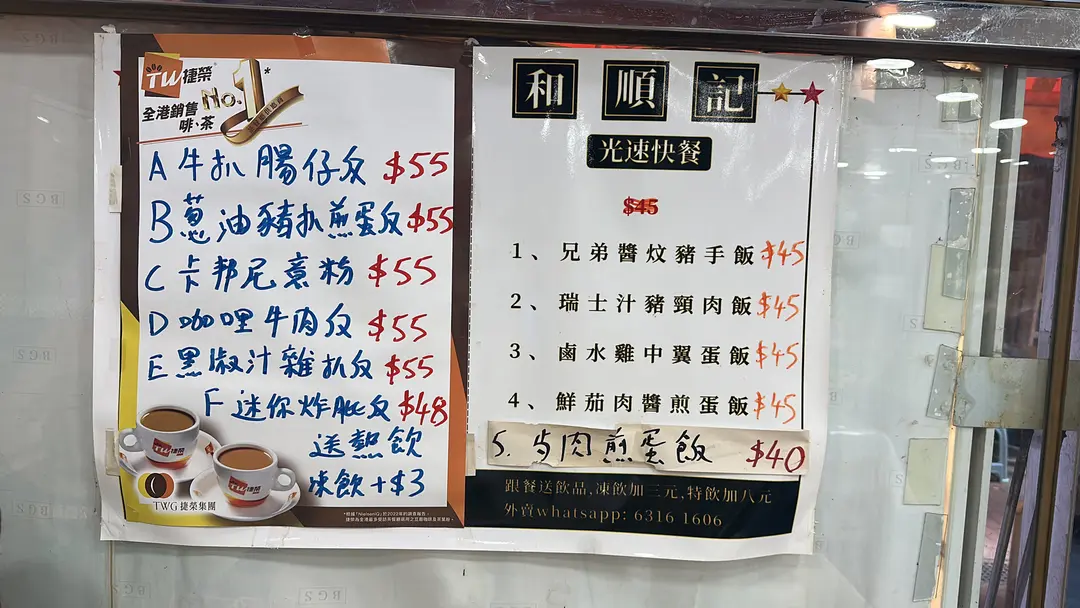 TW捷榮
全港銷售
啡、茶
No.1*
A 牛扒腸仔反 $55
B 蔥油豬扒煎蛋反 $55
C 卡邦尼意粉 $55
D 咖哩牛肉反 $55
E 黑椒汁雜扒反 $55
F 迷你炸肶反 $48
送熱飲
凍飲+$3
TWG 捷榮集團
和順記
光速快餐
$45
1、兄弟醬炆豬手飯 $45
2、瑞士汁豬頸肉飯 $45
3、鹵水雞中翼蛋飯 $45
4、鮮茄肉醬煎蛋飯 $45
5. 肉煎蛋飯 $40
跟餐送飲品,凍飲加三元,特飲加八元
外賣whatsapp: 6316 1606